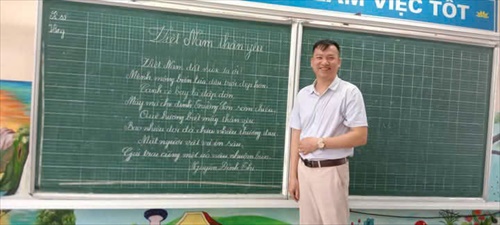 LÀM VIỆC TỐT
Sĩ số
Vắng
Việt Nam thân yêu
Việt Nam đất nước ta ơi
Mênh mông biển lúa đâu trời đẹp hơn
Cánh cò bay lả dập dờn
Mây mờ che đỉnh Trường Sơn sớm chiều
Quê hương biết mấy thân yêu
Bao nhiêu đời đã chịu nhiều thương đau
Mặt người vất vả in sâu
Gái trai cũng một áo nâu nhuộm bùn
Nguyễn Đình Thi